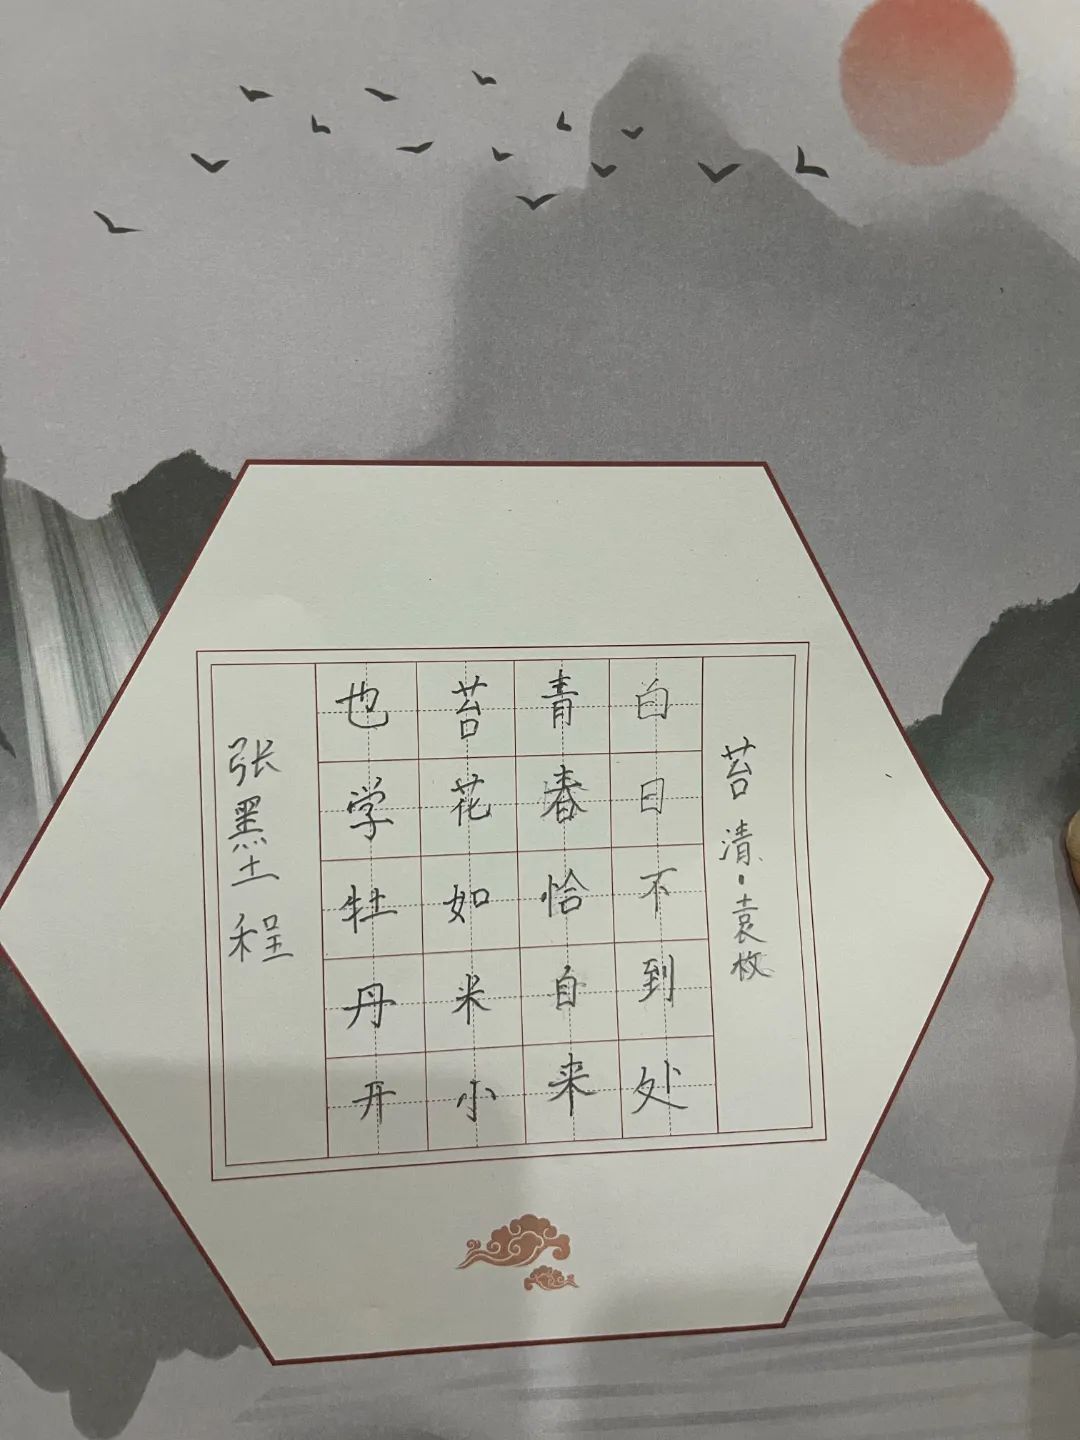 苔 清·袁枚
白目不到处
青春恰自来
苔花如米小
也学牡丹开
张墨程